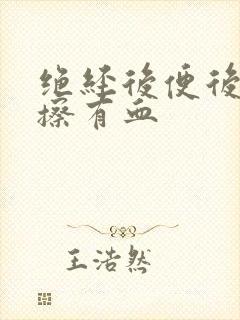 绝经後便後
擦有血
王浩然